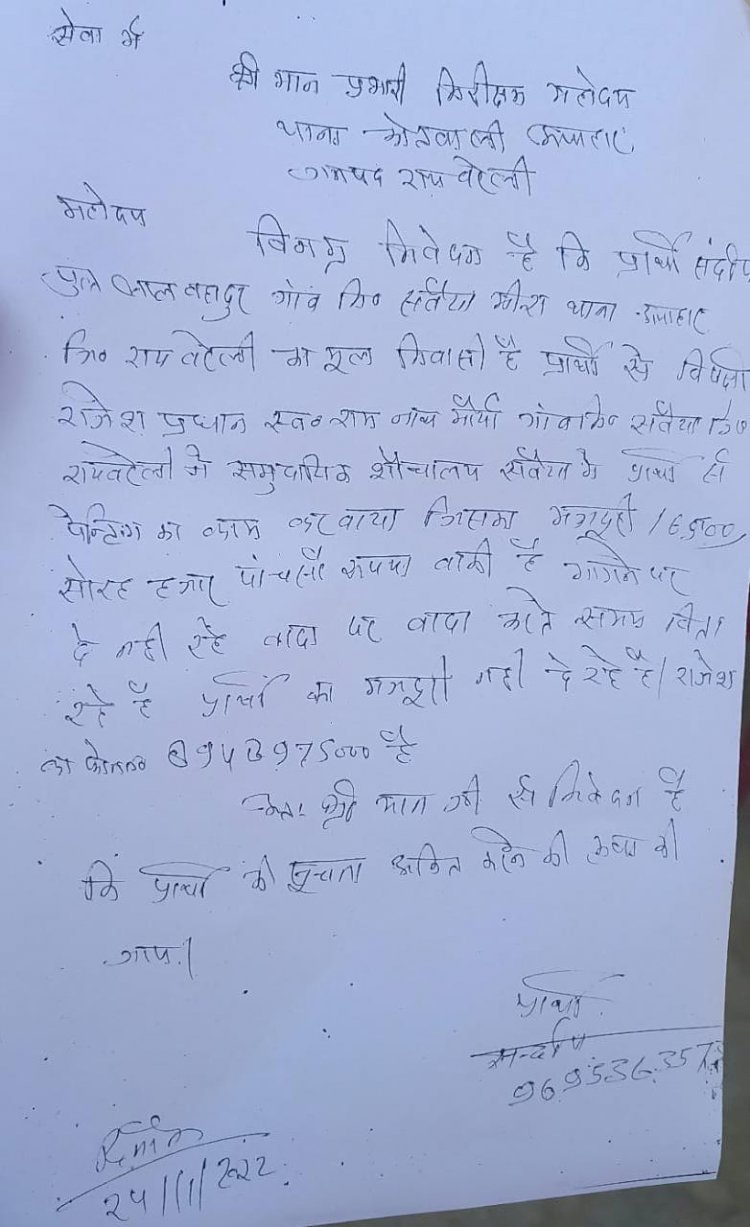 सेवा में
श्री मान प्रभारी निरीक्षक महोदय
थाना कोतवाली ऊंचाहार
जनपद राय बरेली
महोदय
विनम्र निवेदन है कि प्रार्थी संदीप
पुत्र लाल बहादुर गांव नि० सवैया थाना ऊंचाहार
जि० राय बरेली का मूल निवासी है प्रार्थी से विपक्षी
राजेश प्रधान स्व० राम नाथ मौर्या सवैया
रायबरेली ने समुदायिक शौचालय सवैया में प्रार्थी
पेन्टिंग का काम करवाया जिसका मजदूरी 16500
सोरह हजार पांच सौ रूपया बाकी है मागने पर
दे नही रहे वादा पर वादा करते समय बिता
रहे है प्रार्थी का मजदूरी नही दे रहे है। राजेश
का है
अतः श्री मान जी से निवेदन है
कि प्रार्थी की सूचना अंकित करने की कृपा की
जाय।
प्रार्थी
सन्दीप
दिनांक
24/11/2022